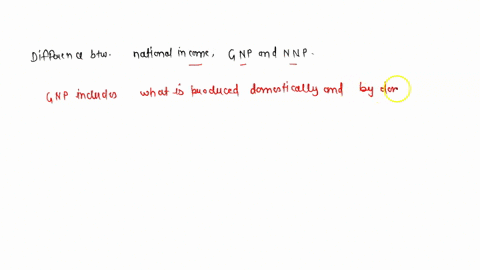 Difference btw. national income, GNP and NNP.
GNP includes what is produced domestically and by dom